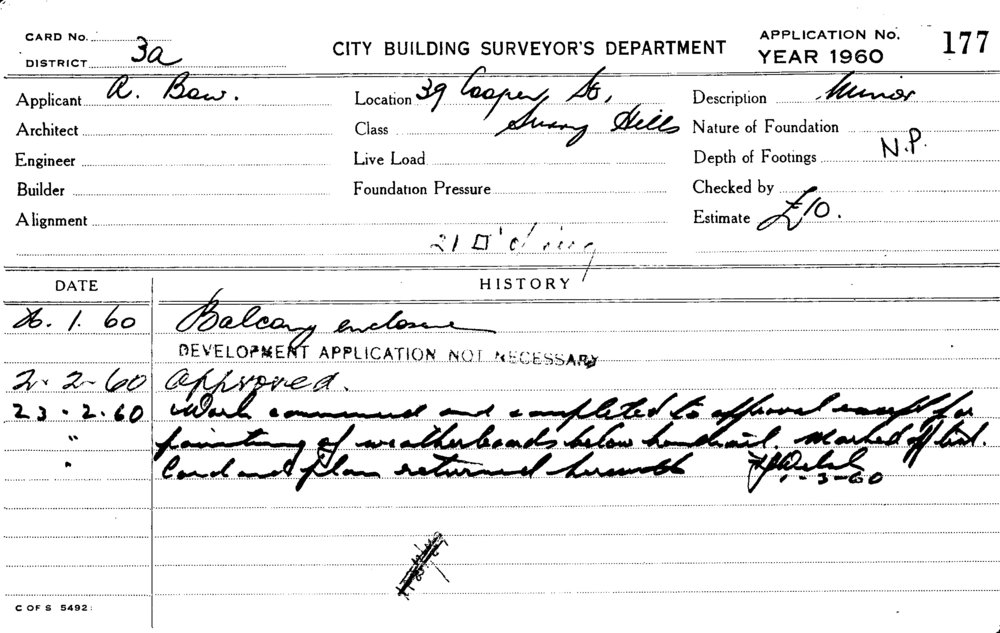 CARD No.
DISTRICT 3a
CITY BUILDING SURVEYOR'S DEPARTMENT
APPLICATION No. 177
YEAR 1960
Applicant A. Bow.
Location 39 Cooper St,
Description Minor
Architect
Class Surry Hills
Nature of Foundation
Engineer
Live Load
Depth of Footings N.P.
Builder
Foundation Pressure
Checked by
Alignment
Estimate £10.
21
DATE
HISTORY
1. 60 Balcony enclosure
DEVELOPMENT APPLICATION NOT NECESSARY
2. 2-60 Approved.
23.2.60 Work commenced and completed to approval except for
" painting of weatherboards below handrail. Marked off list.
" Card and plan returned herewith
1-3-60
C OF S 5492